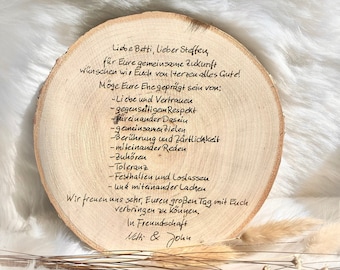 Liebe Betti, Lieber Steffen,
für Eure gemeinsame Zukunft
wünschen wir Euch von Herzen alles Gute!
Möge Eure Ehe geprägt sein von:
- Liebe und Vertrauen
- gegenseitigem Respekt
- füreinander Dasein
- gemeinsamen Zielen
- Berührung und Zärtlichkeit
- miteinander Reden
- zuhören
- Toleranz
- Festhalten und Loslassen
- und miteinander Lachen
Wir freuen uns sehr, Euren großen Tag mit Euch
verbringen zu können,
In Freundschaft
& John